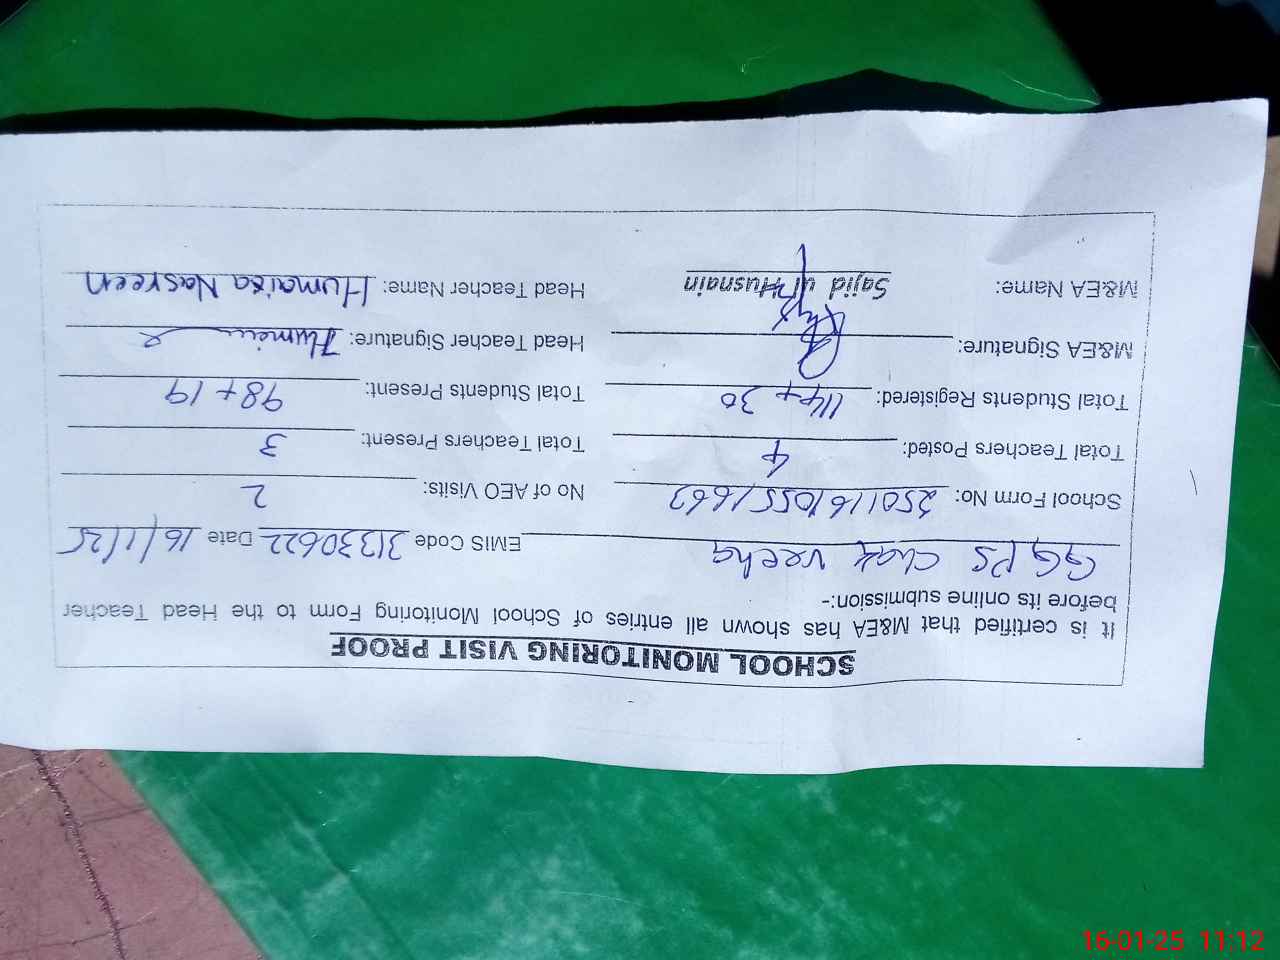 SCHOOL MONITORING VISIT PROOF
It is certified that M&EA has shown all entries of School Monitoring Form to the Head Teacher
before its online submission:-
GGPS Chak veeha EMIS Code 31330622 Date 16/1/25
School Form No: 2501161055 No of AEO Visits: 2
Total Teachers Posted: 4 Total Teachers Present: 3
Total Students Registered: 114+30 Total Students Present: 98+19
M&EA Signature: Head Teacher Signature:
M&EA Name: Sajid ul Husnain Head Teacher Name: Humaira Nasreen
16-01-25 11:12